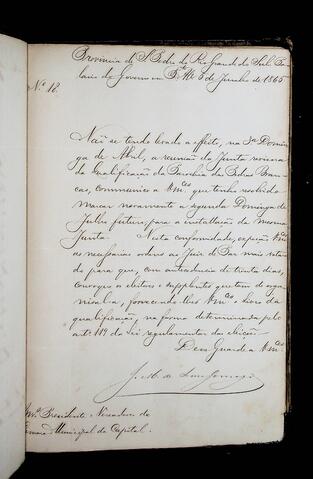 Provincia de S. Pedro do Rio Grande do Sul. Pa-
lacio do Governo em P. Al. 3 de Junho de 1865
Nº 18.
Não se tendo levado a effeito, na 3ª Domin-
ga de Abril, a reunião da Junta revisora
da Qualificação da Parochia das Pedras Bran-
cas, communico a Vmces que tenho resolvido
marcar novamente a segunda Dominga de
Julho futuro, para a installação da mesma
Junta. Nesta conformidade, expeção Vmces
as necessarias ordens ao Juiz de Paz mais vota-
do para que, com antecedencia de trinta dias,
convoque os eleitores e supplentes que tem de orga-
nisal-a, fornecendo lhes Vmces o livro da
qualificação, na forma determinada pelo
artº 119 da lei regulamentar das eleições.
Deos Guarde a Vmces
Snrs. Presidente e Vereadores da
Camara Municipal da Capital.